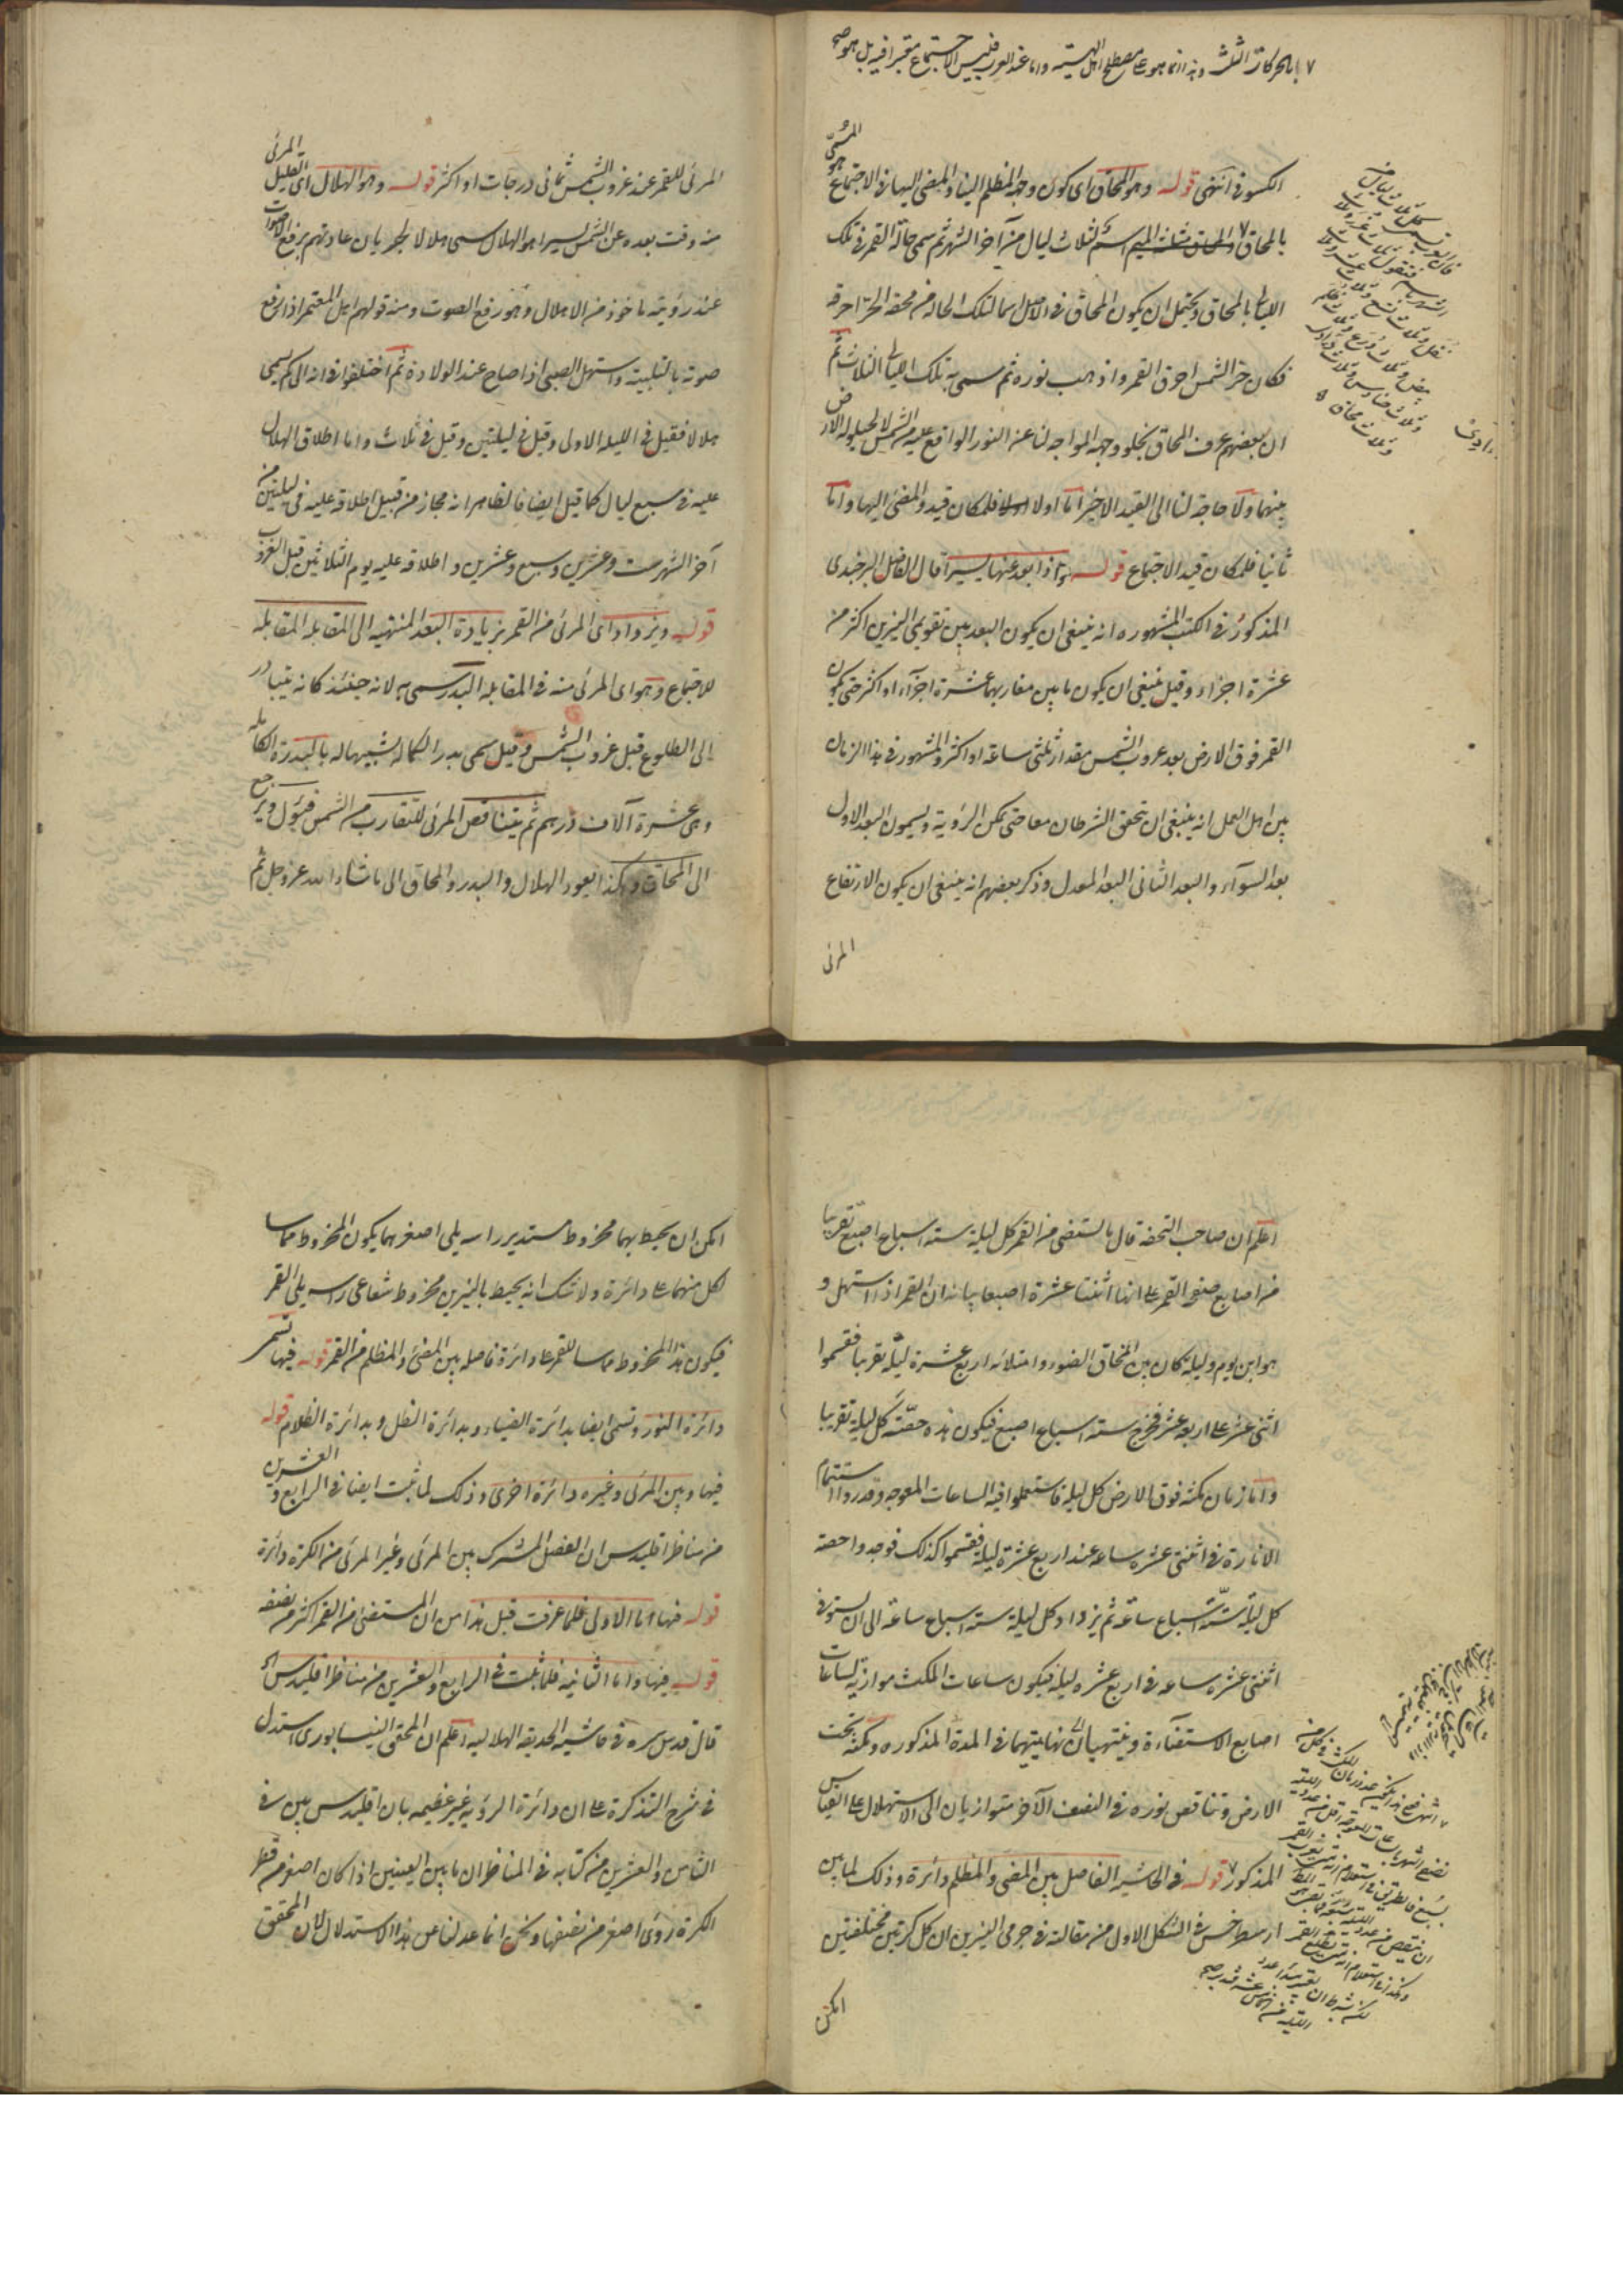 بالحركات الثلث وهذا انما هو على مصطلح اهل الهيئة واما عند العرب فليس الاجتماع معتبرا فيه بل هو صح
الكسوف انتهى قوله وهو المحاق اى كون وجهه المظلم الينا والمضئ اليها فى الاجتماع هو المسمى
بالمحاق والمحاق مثلثة الميم اسم لثلاث ليال من آخر الشهر ثم سمى حالة القمر فى تلك
الليالى بالمحاق ويحتمل ان يكون المحاق فى الاصل اسما لتلك الحالة من محقه الحر احرقه
فكان حر الشمس احرق القمر واذهب نوره ثم سمى به تلك الليالى الثلاث ثم
ان بعضهم عرف المحاق بخلو وجهه المواجه لنا عن النور الواقع عليه من الشمس لا لحيلولة الارض
بينهما ولا حاجة لنا الى القيد الاخير اما اولا فلمكان قيد والمضئ اليها واما
ثانيا فلمكان قيد الاجتماع قوله واذا بعد عنها يسيرا قال الفاضل البرجندى
المذكور فى الكتب المشهورة انه ينبغى ان يكون البعد بين تقويمى النيرين اكثر من
عشرة اجزاء وقيل ينبغى ان يكون ما بين مغاربهما عشرة اجزاء او اكثر حتى يكون
القمر فوق الارض بعد غروب الشمس مقدار ثلثى ساعة او اكثر والمشهور فى هذا الزمان
بين اهل العمل انه ينبغى ان تحقق الشرطان معا حتى تمكن الرؤية ويسمون البعد الاول
بعد السوآء والبعد الثانى البعد المعدل وذكر بعضهم انه ينبغى ان يكون الارتفاع
المرئى
المرئى للقمر عند غروب الشمس ثمانى درجات او اكثر قوله وهو الهلال اى القليل المرئى
منه وقت بعده عن الشمس يسيرا هو الهلال سمى هلالا لجريان عادتهم برفع الاصوات
عند رؤيته ماخوذ من الاهلال وهو رفع الصوت ومنه قولهم اهل المعتمر اذا رفع
صوته بالتلبية واستهل الصبى اذا صاح عند الولادة ثم اختلفوا فى انه الى كم يسمى
هلالا فقيل فى الليلة الاولى وقيل فى ليلتين وقيل فى ثلاث واما اطلاق الهلال
عليه فى سبع ليال كما قيل ايضا فالظاهر انه مجاز من قبيل اطلاقه عليه فى ليلتين من
آخر الشهر ست وعشرين وسبع وعشرين واطلاقه عليه يوم الثلاثين قبل الغروب
قوله ويزداد اى المرئى من القمر بزيادة البعد المنتهية الى المقابلة المقابلة
للاجتماع وهو اى المرئى منه فى المقابلة البدر سمى به لانه حينئذ كانه يتبادر
الى الطلوع قبل غروب الشمس وقيل سمى بدرا لكماله تشبيها له بالبدرة الكاملة
وهى عشرة آلاف درهم ثم يتناقص المرئى للتقارب من الشمس فيئول ويرجع
الى المحاق وهكذا يعود الهلال والبدر والمحاق الى ما شاء الله عز وجل ثم
اعلم ان صاحب التحفة قال ما يستضئ من القمر كل ليلة ستة اسباع اصبع تقريبا
من اصابع صفحة القمر على انها اثنتا عشرة اصبعا بيانه ان القمر اذا استهل و
هو ابن يوم وليلة كان بين انمحاق الضوء وامتلائه اربع عشرة ليلة تقريبا فقسموا
اثنى عشر على اربعة عشر فخرج ستة اسباع اصبع فيكون هذه حصة كل ليلة تقريبا
واما زمان مكثه فوق الارض كل ليلة فاستعملوا فيه الساعات المعوجة وقدروا استتمام
الانارة فى اثنتى عشرة ساعة عند اربع عشرة ليلة فقسموا كذلك فوجدوا حصة
كل ليلة ستة اسباع ساعة ثم يزداد كل ليلة ستة اسباع ساعة الى ان يستوفى
اثنتى عشرة ساعة فى اربع عشرة ليلة فيكون ساعات المكث موازية لساعات
اصابع الاستضآءة وينتهيان الى نهايتيهما فى المدة المذكورة ومكثه تحت
الارض وتناقص نوره فى النصف الآخر متوازيان الى الاستهلال على القياس
المذكور قوله فى الحاشية الفاصل بين المضئ والمظلم دائرة وذلك لما بين
ارسطرخس فى الشكل الاول من مقالته فى جرمى النيرين ان كل كرتين مختلفتين
امكن
امكن ان يحيط بهما مخروط مستدير راسه يلى اصغرهما يكون المخروط مماسا
لكل منهما على دائرة ولا شك انه يحيط بالنيرين مخروط شعاعى راسه يلى القمر
فيكون هذا المخروط مماسا للقمر على دائرة فاصلة بين المضئ والمظلم من القمر قوله فيها تسمى
دائرة النور وتسمى ايضا بدائرة الضياء وبدائرة الظل وبدائرة الظلام قوله
فيها وبين المرئى وغيره دائرة اخرى وذلك لما ثبت ايضا فى الرابع والعشرين
من مناظر اقليدس ان الفصل المشترك بين المرئى وغير المرئى من الكرة دائرة
قوله فيها اما الاولى فلما عرفت قبل هذا من ان المستضئ من القمر اكثر من نصفه
قوله فيها واما الثانية فلما ثبت فى الرابع والعشرين من مناظر اقليدس اه
قال قدس سره فى حاشية الحديقة الهلالية اعلم ان المحقق النيسابورى استدل
فى شرح التذكرة على ان دائرة الرؤية غير عظيمة بان اقليدس بين فى
الثامن والعشرين من كتابه فى المناظر ان ما بين العينين اذا كان اصغر من قطر
الكرة رؤى اصغر من نصفها ونحن انما عدلنا عن هذا الاستدلال لان المحقق